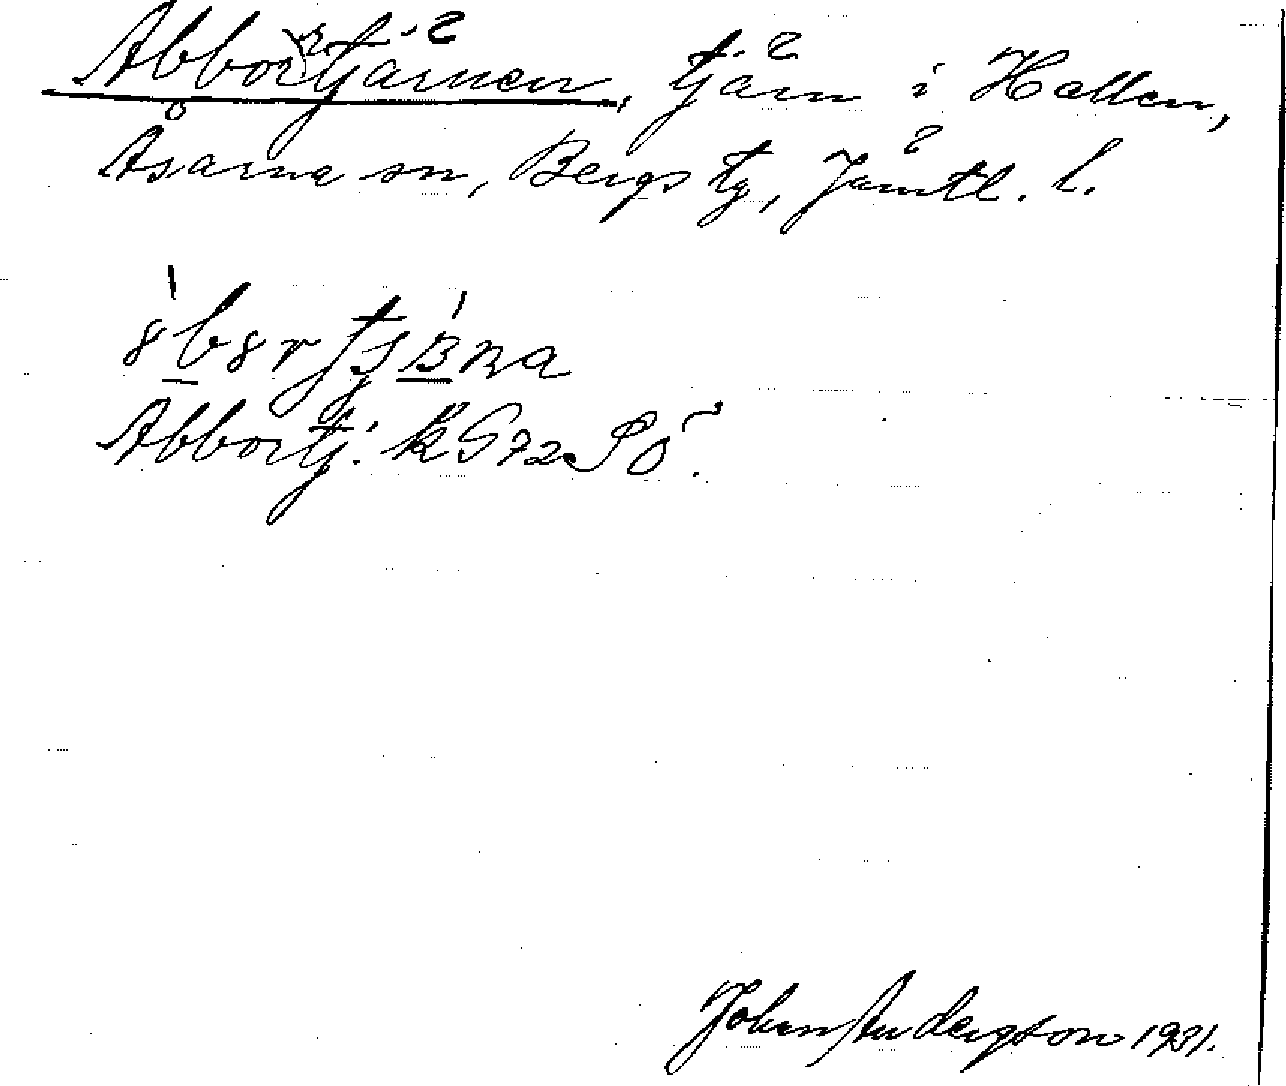 Abbortjärnen, tjärn i Hallen,
Åsarna sn, Bergs tg, Jämtl. l.
Abbortj: k G72 SO
Johan Andersson 1931.